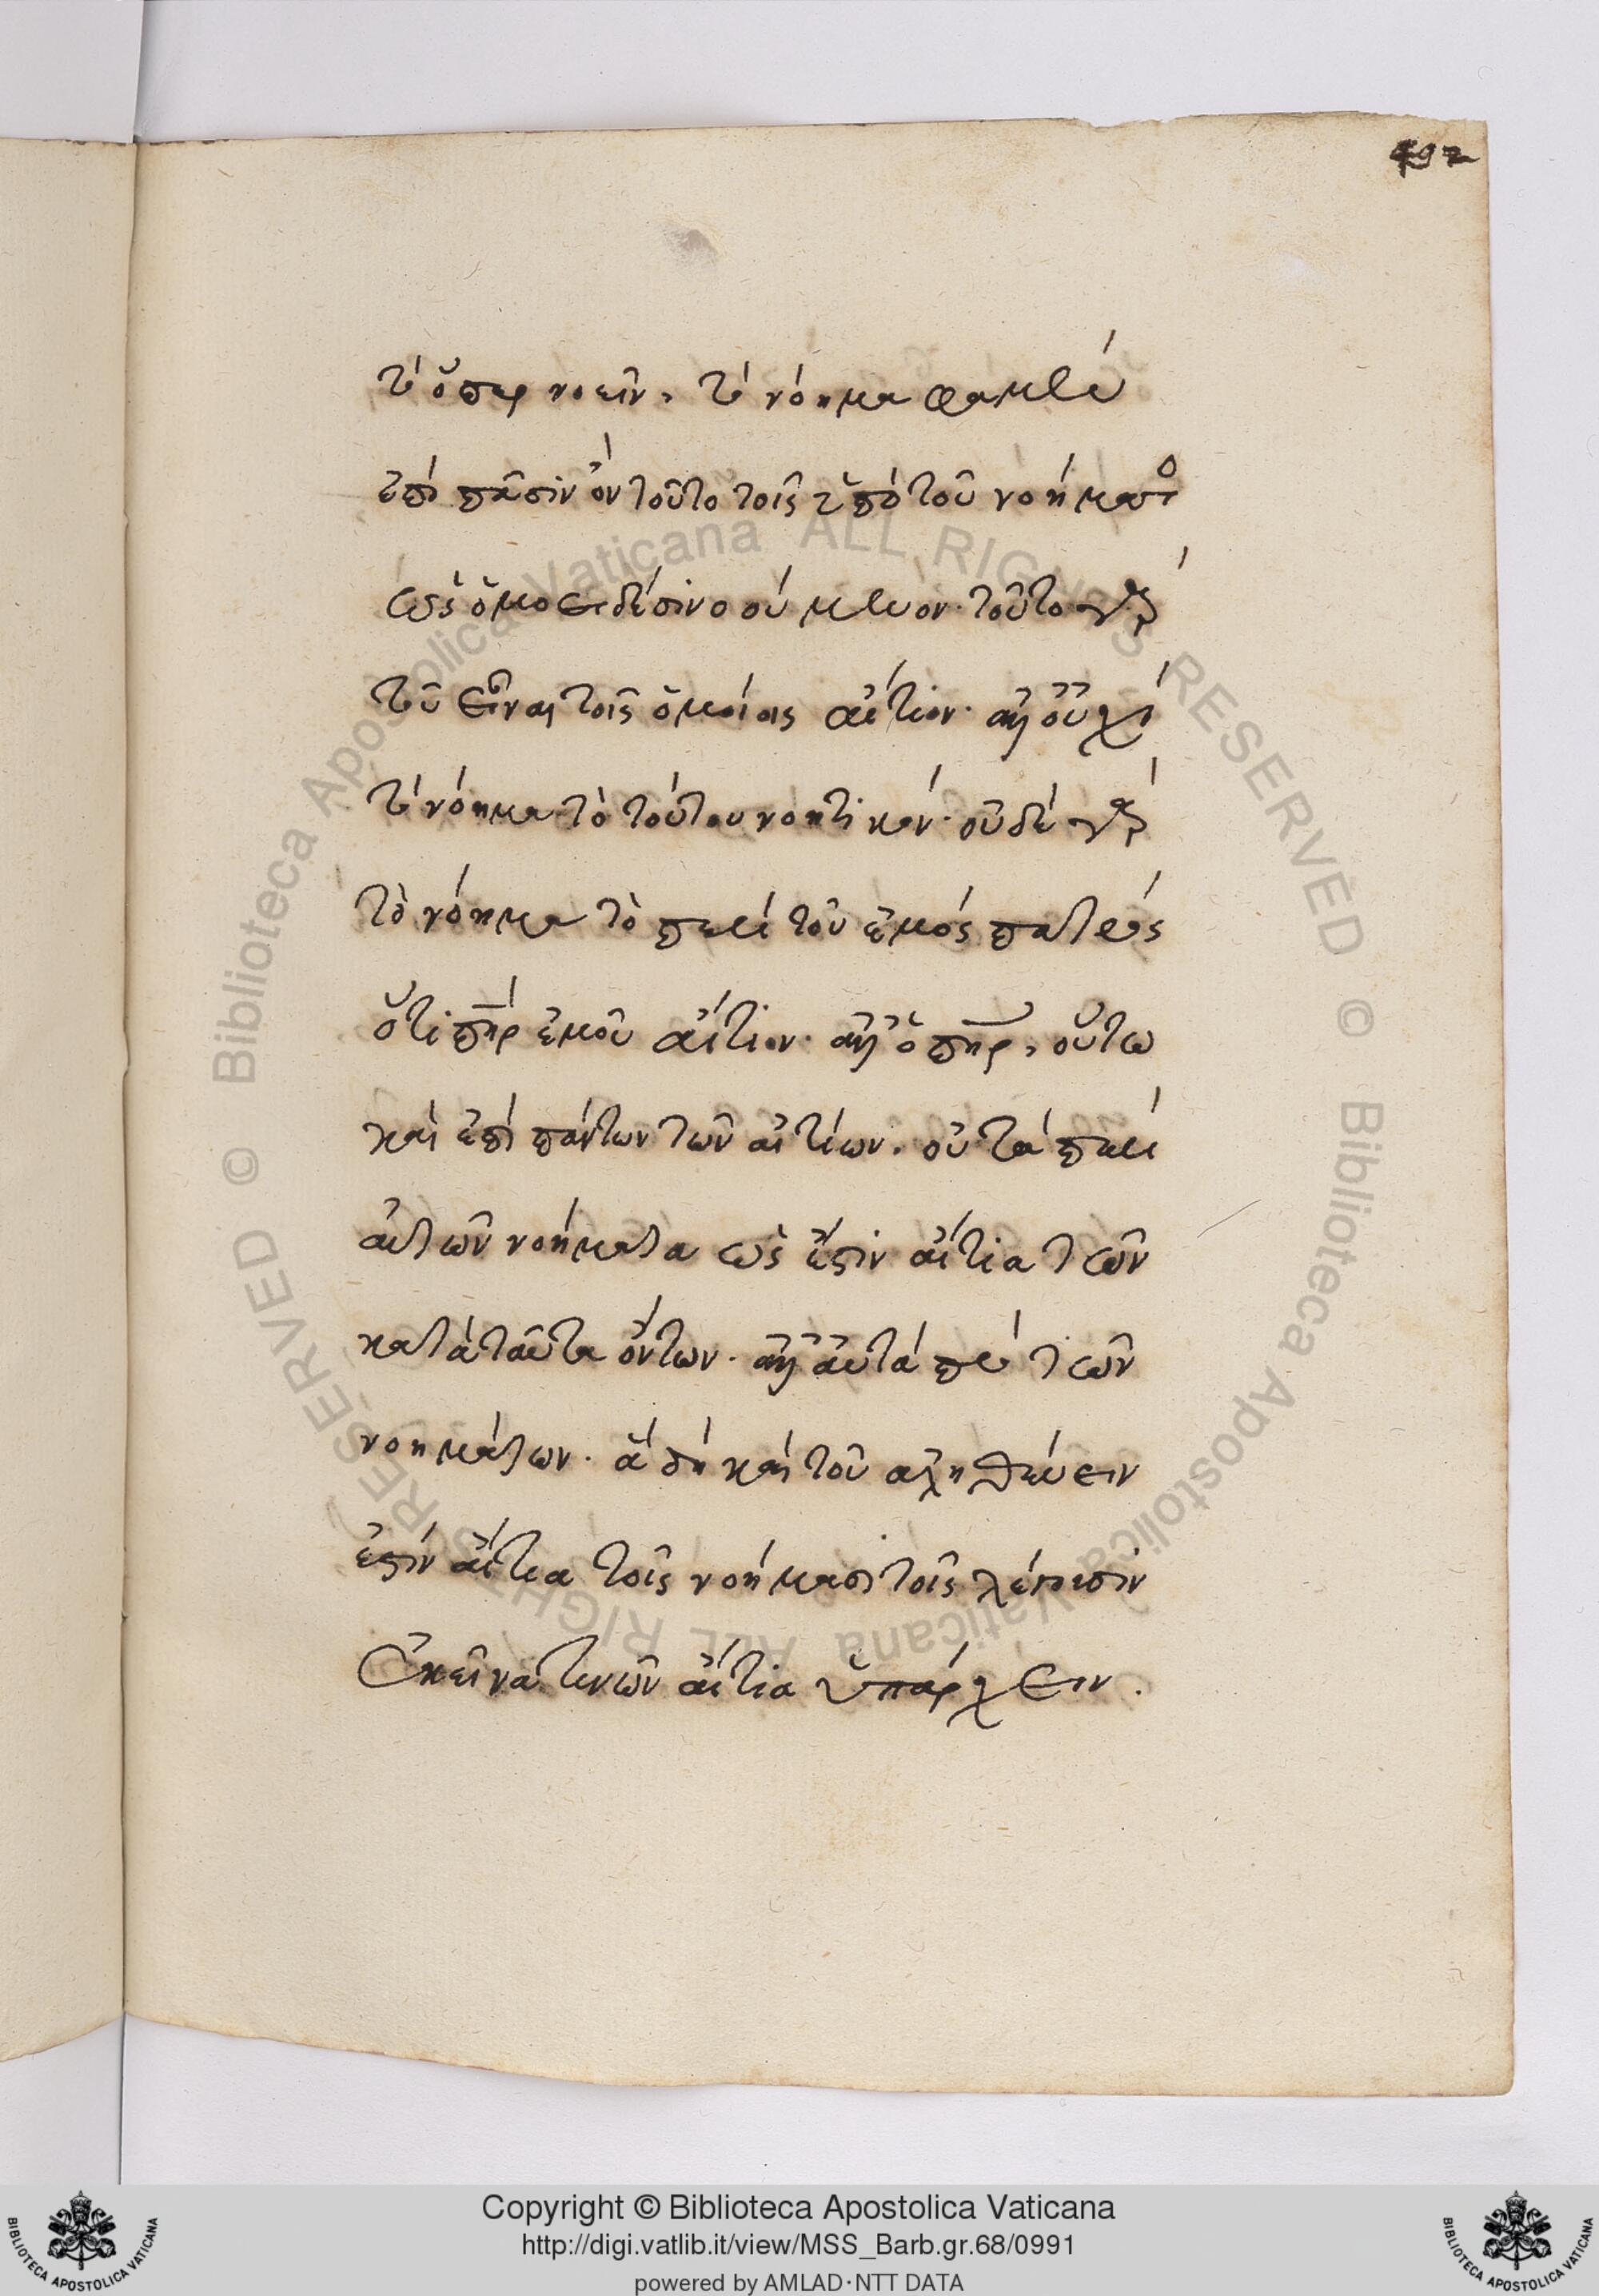 492
τὸ ὅπερ νοεῖν, τὸ νόημα φαμὲν
ἐπὶ πᾶσιν ὂν τοῦτο τοῖς ὑπὸ τοῦ νοήματο
ὡς ὁμοειδέσι νοούμενον· τοῦτο γὰρ
τοῦ εἶναι τοῖς ὁμοίοις αἴτιον· ἀλλ' οὐχὶ
τὸ νόημα τὸ τούτου νοητικόν· οὐδὲ γὰρ
τὸ νόημα τὸ περὶ τοῦ ἐμός πατρὸς
ὅτι πηρ ἐμοῦ αἴτιον· ἀλλ' ὁ πηρ, οὕτω
καὶ ἐπὶ πάντων τῶν αἰτίων· οὐ τὰ περὶ
αὐτῶν νοήματα ὡς ἔστιν αἴτια τῶν
κατὰ ταῦτα ὄντων· ἀλλ' αὐτὰ πρὸ τῶν
νοημάτων· ἃ δὴ καὶ τοῦ ἀληθεύειν
ἐστὶν αἴτια τοῖς νοήμασι τοῖς λέγουσιν
Ἐκεῖνα τινῶν αἴτια ὑπάρχειν.
Copyright © Biblioteca Apostolica Vaticana
http://digi.vatlib.it/view/MSS_Barb.gr.68/0991
powered by AMLAD·NTT DATA